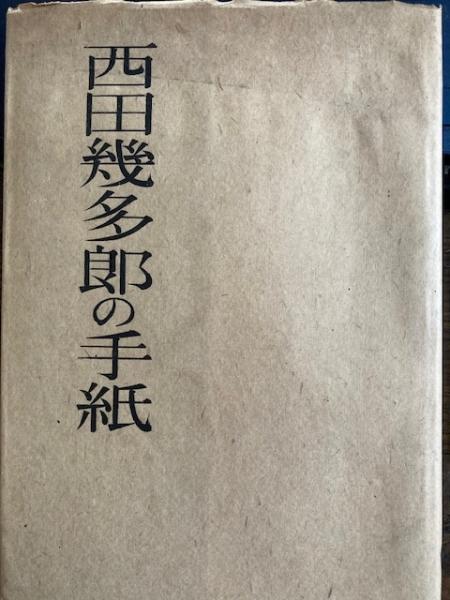 西田幾多郎の手紙